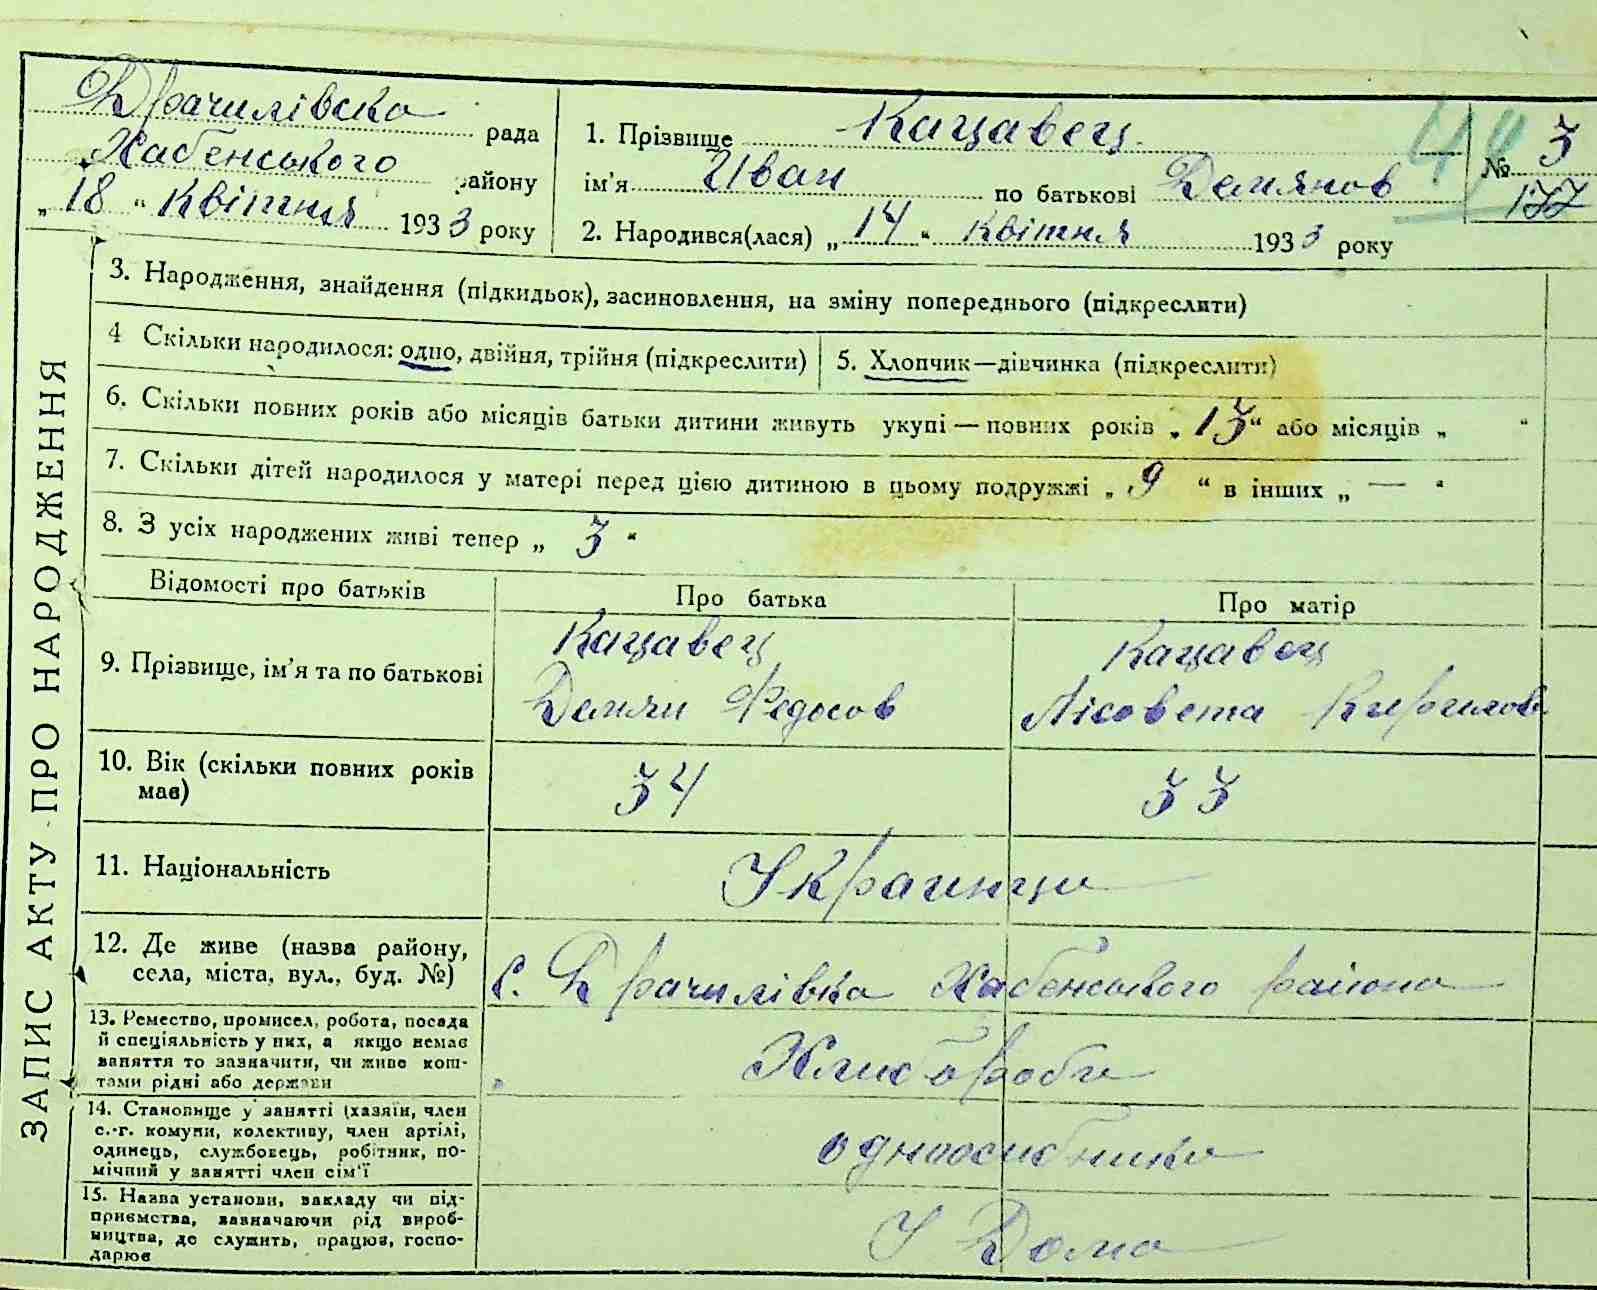 Драчилівска рада
Хабенського району
„ 18 “ Квітня 1933 року
1. Прізвище Кацавец
ім'я Иван по батькові Демянов
2. Народився(лася) „ 14 “ Квітня 1933 року
№ 3
177
3. Народження, знайдення (підкидьок), засиновлення, на зміну попереднього (підкреслити)
4 Скільки народилося: одно, двійня, трійня (підкреслити)
5. Хлопчик—дівчинка (підкреслити)
6. Скільки повних років або місяців батьки дитини живуть укупі — повних років „ 13 “ або місяців „ “
7. Скільки дітей народилося у матері перед цією дитиною в цьому подружжі „ 9 “ в інших „ — “
8. З усіх народжених живі тепер „ 3 “
ЗАПИС АКТУ ПРО НАРОДЖЕННЯ
Відомості про батьків Про батька Про матір
9. Прізвище, ім'я та по батькові
Кацавец
Демян Федосов
Кацавец
Лісовета Кирилов
10. Вік (скільки повних років
має)
34
33
11. Національність
Украинци
12. Де живе (назва району,
села, міста, вул., буд. №)
С. Драчилівка Хабенского района
13. Ремество, промисел, робота, посада
й спеціяльність у них, а якщо немає
заняття то зазначити, чи живе кош-
тами рідні або держави
Хлиборобы
14. Становище у занятті (хазяїн, член
с.-г. комуни, колективу, член артілі,
одинець, службовець, робітник, по-
мічний у занятті член сім'ї
одноосибники
15. Назва установи, закладу чи під-
приємства, зазначаючи рід вироб-
ництва, де служить, працює, госпо-
дарює
У Дома